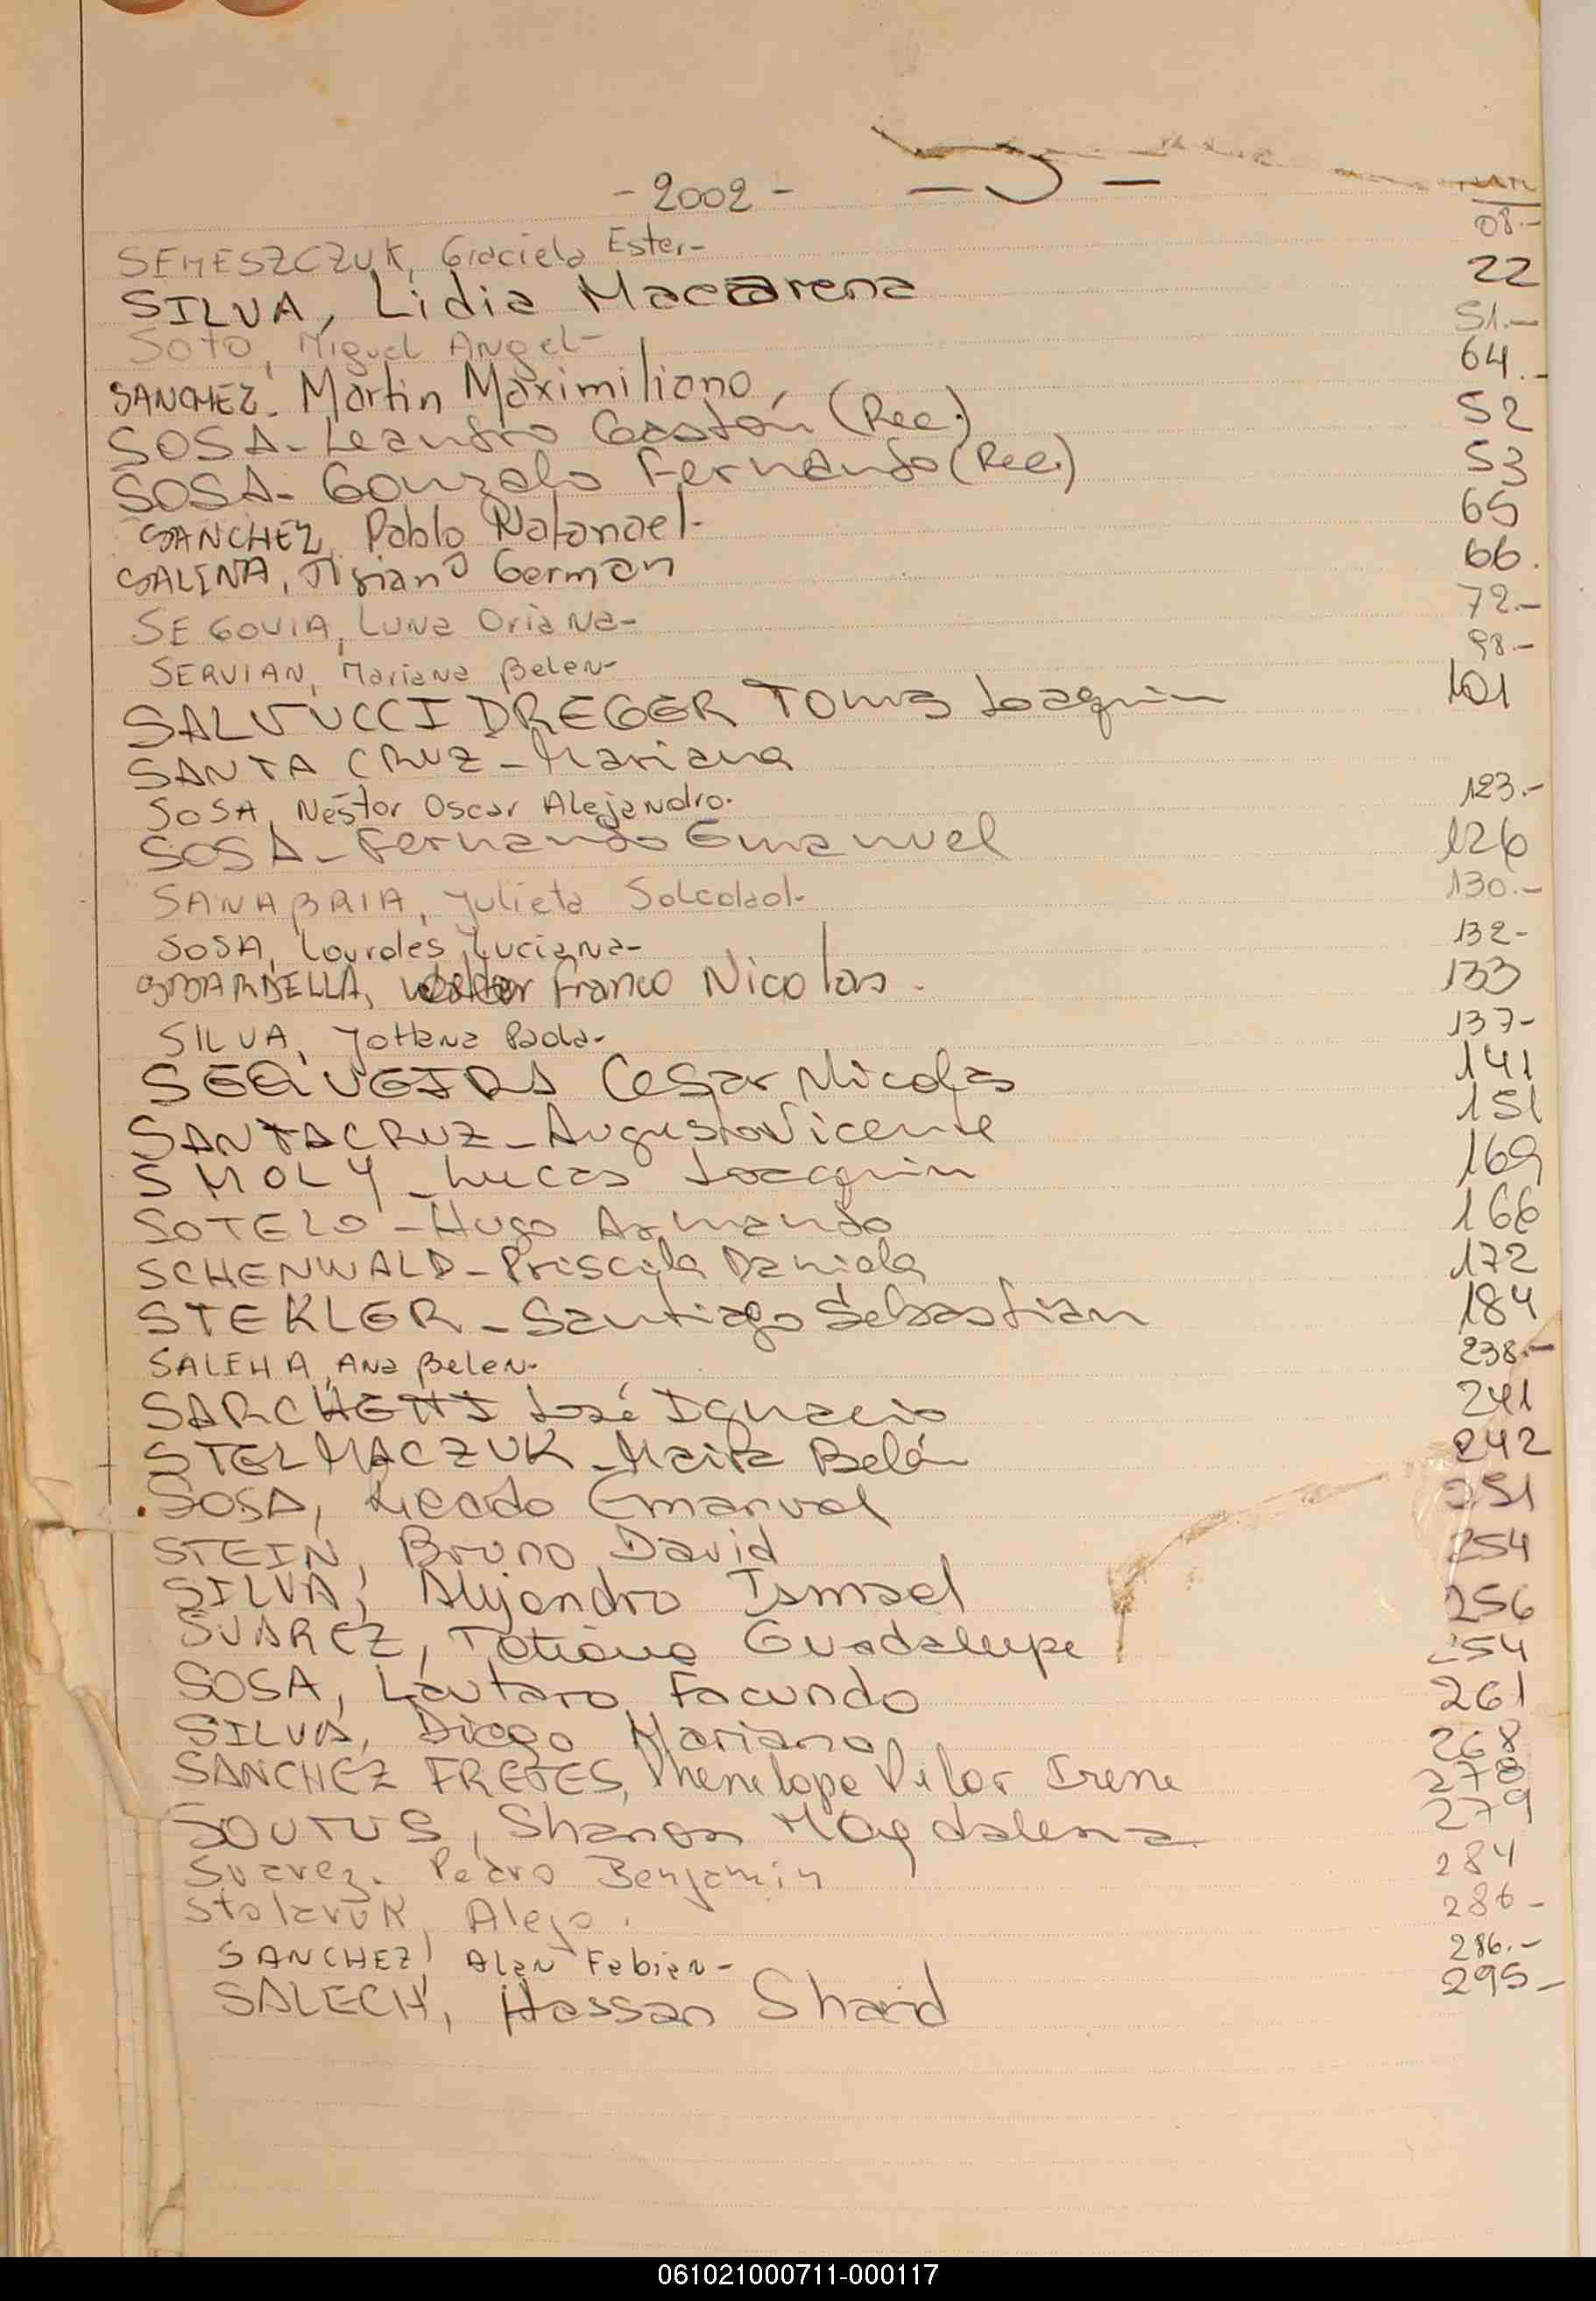 - 2002 - - S -
SEMESZCZUK, Graciela Ester- 08.-
SILVA, Lidia Macarena 22
SOTO, Miguel Angel- 51.-
SANCHEZ. Martin Maximiliano, 64.-
SOSA- Leandro Gastón (Rec.) 52
SOSA- Gonzalo Fernando (Rec.) 53
SANCHEZ, Pablo Natanael- 65
SALINA, Tisiano German 66.
SEGOVIA, Luna Oriana- 72.-
SERVIAN, Mariana Belen- 98.-
SALVUCCI DREGER Tomas Joaquin 101
SANTA CRUZ - Mariana
SOSA, Nestor Oscar Alejandro. 123.-
SOSA - Fernando Emanuel 126
SANABRIA, Julieta Soledad- 130.-
SOSA, Lourdes Luciana- 132-
Franco Nicolas. 133
SILVA, Johana Paola- 137-
SEQUEIRA Cesar Nicolas 141
SANTACRUZ - Augusto Vicente 151
SMOLY - Lucas Joaquin 169
SOTELO - Hugo Armando 166
SCHENWALD - Priscila Daniela 172
STEKLER - Santiago Sebastian 184
SALEHA, Ana Belen- 238.-
SARCHETTI José Ignacio 241
STELMACZUK - Maira Belén 242
SOSA, Emanuel 251
STEIN, Bruno David 254
SILVA, Alejandro Ismael 256
SUAREZ, Tatiana Guadalupe 254
SOSA, Lautaro Facundo 261
SILVA, Diego Mariano 268
SANCHEZ FRETES, Phenelope Pilar Irene 278
SOUTUS, Sharon Magdalena 279
Suarez. Pedro Benjamin 284
Stolaruk, Alejo. 286-
SANCHEZ, Alan Fabian- 286.-
SALECH, Hassan Sharid 295-
061021000711-000117